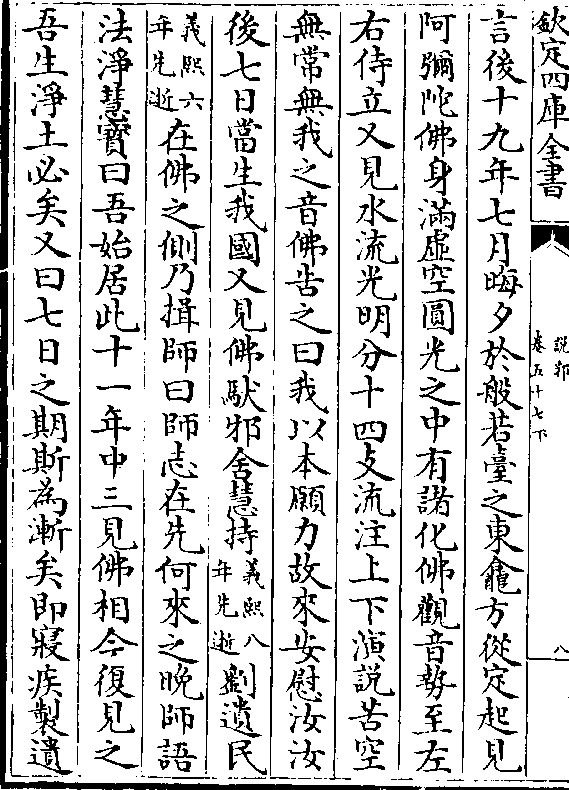 欽定四庫全書
說郛
卷五十七下
八
言後十九年七月晦夕於般若臺之東龕方從定起見
阿彌陀佛身滿虛空圓光之中有諸化佛觀音勢至左
右侍立又見水流光明分十四支流注上下演說苦空
無常無我之音佛告之曰我以本願力故來安慰汝汝
後七日當生我國又見佛馱邪舍慧持義熙八年先逝劉遺民
義熙六年先逝在佛之側乃揖師曰師志在先何來之晚師語
法淨慧寶曰吾始居此十一年中三見佛相今復見之
吾生淨土必矣又曰七日之期斯為漸矣即寢疾製遺